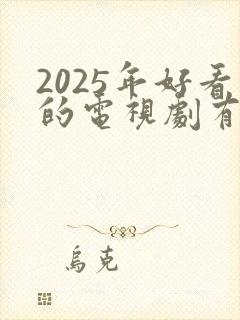 2025年好看
的電視劇有
烏克